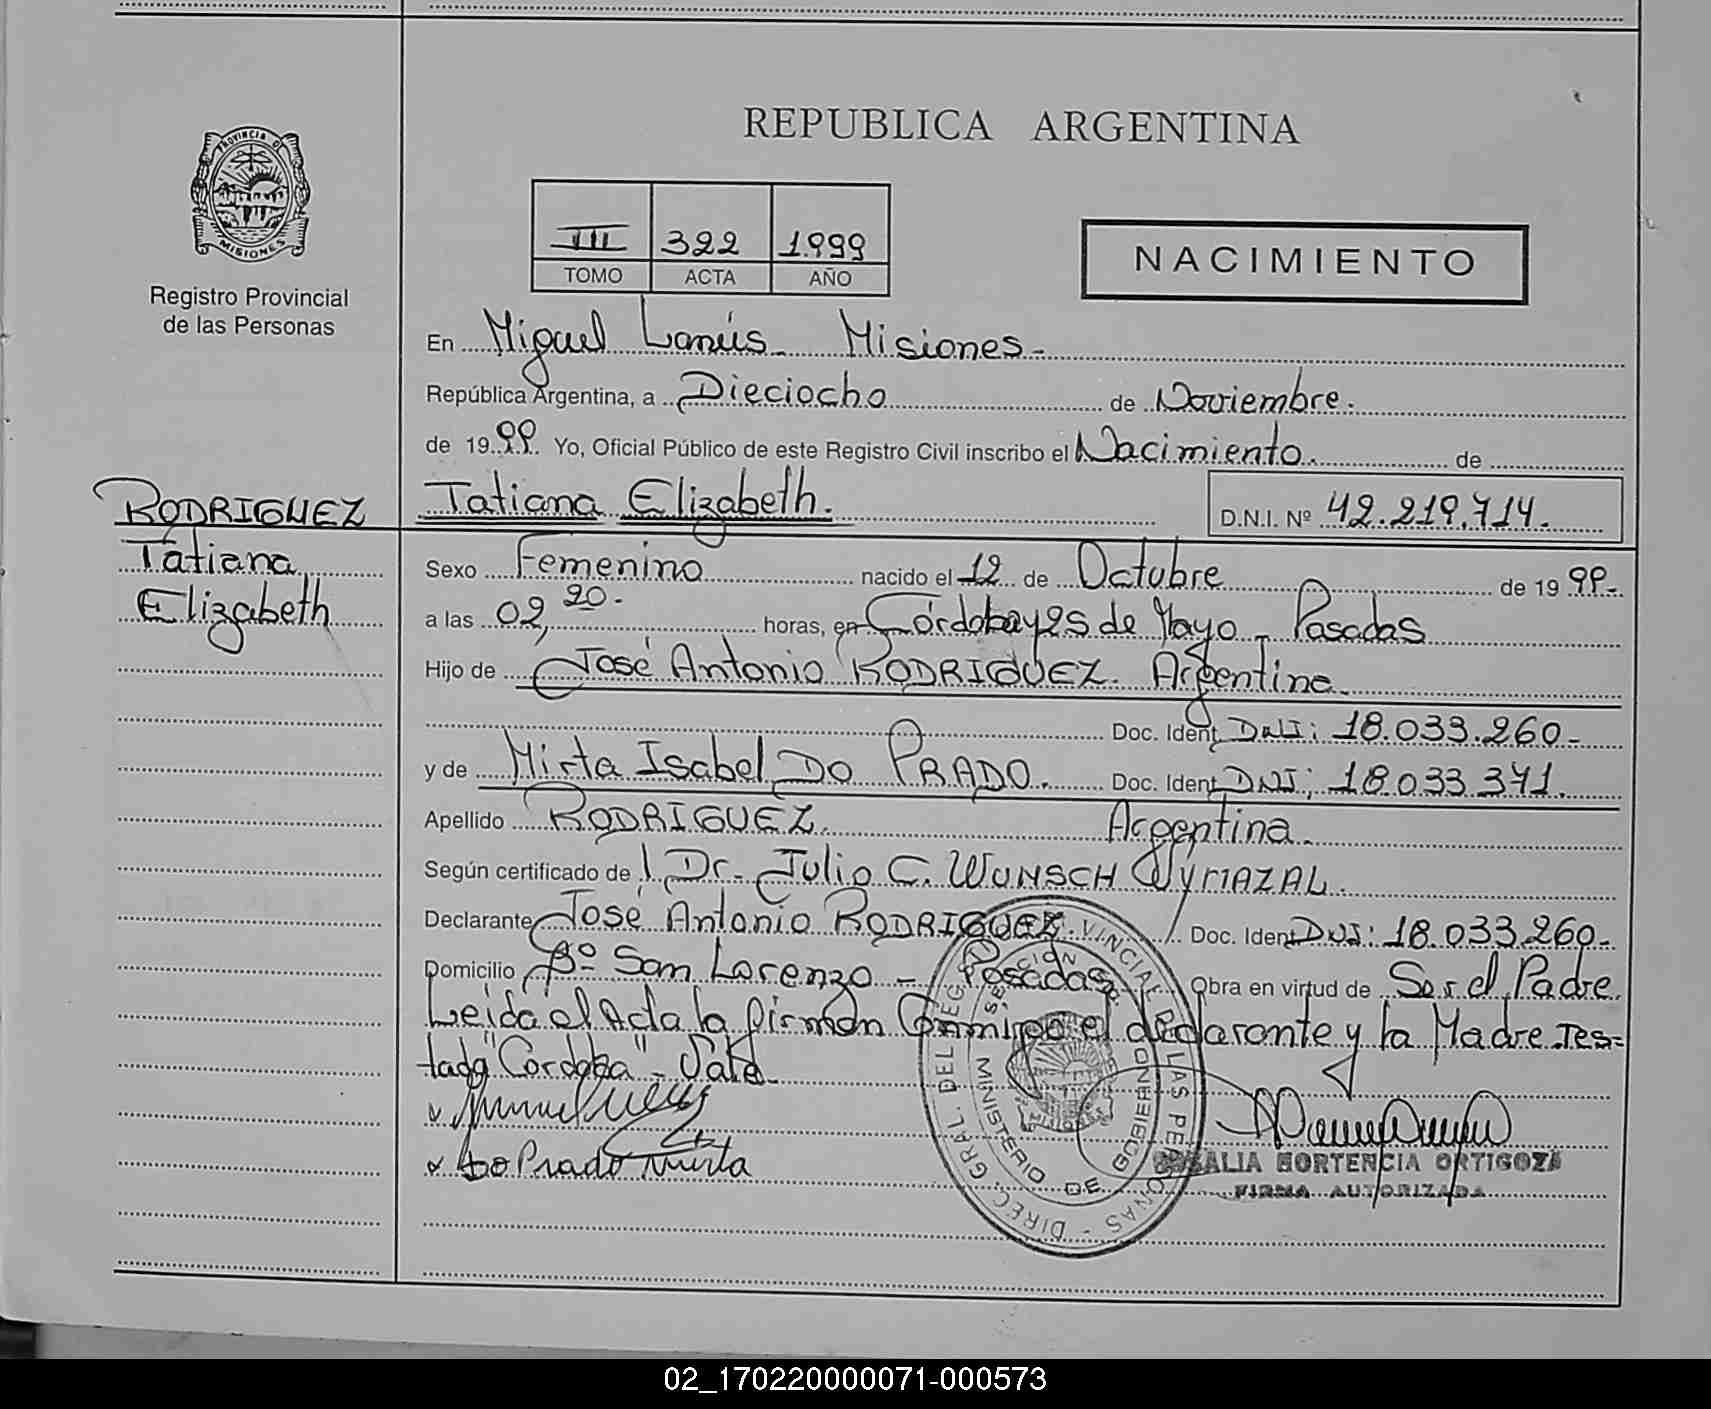 REPUBLICA ARGENTINA
PROVINCIA DE
MISIONES
Registro Provincial
de las Personas
III 322 1999
TOMO ACTA AÑO
NACIMIENTO
En Miguel Lanús - Misiones-
República Argentina, a Dieciocho de Noviembre.
de 1999. Yo, Oficial Público de este Registro Civil inscribo el Nacimiento. de
RODRIGUEZ
Tatiana
Elizabeth
Tatiana Elizabeth. D.N.I. Nº 42.219.714.
Sexo Femenino nacido el 12 de Octubre de 1999.-
a las 02,20.- horas, en Córdoba y 25 de Mayo - Posadas
Hijo de José Antonio RODRIGUEZ. Argentino.
Doc. Ident. DNI: 18.033.260-
y de Mirta Isabel DO PRADO. Doc. Ident. DNI: 18.033.371.
Apellido RODRIGUEZ. Argentina.
Según certificado de Dr. Julio C. WUNSCH WYMAZAL.
Declarante José Antonio RODRIGUEZ. Doc. Ident. DNI: 18.033.260-
Domicilio Bº San Lorenzo - Posadas Obra en virtud de Ser el Padre.
Leída el Acta la firman Conmigo el declarante y la Madre. Tes-
tado "Cordoba" - Vale
Do Prado Mirta
DIREC. GRAL. DEL REG. PROVINCIAL DE LAS PERSONAS -
MINISTERIO DE GOBIERNO
ROSALIA HORTENCIA ORTIGOZA
FIRMA AUTORIZADA
02_170220000071-000573